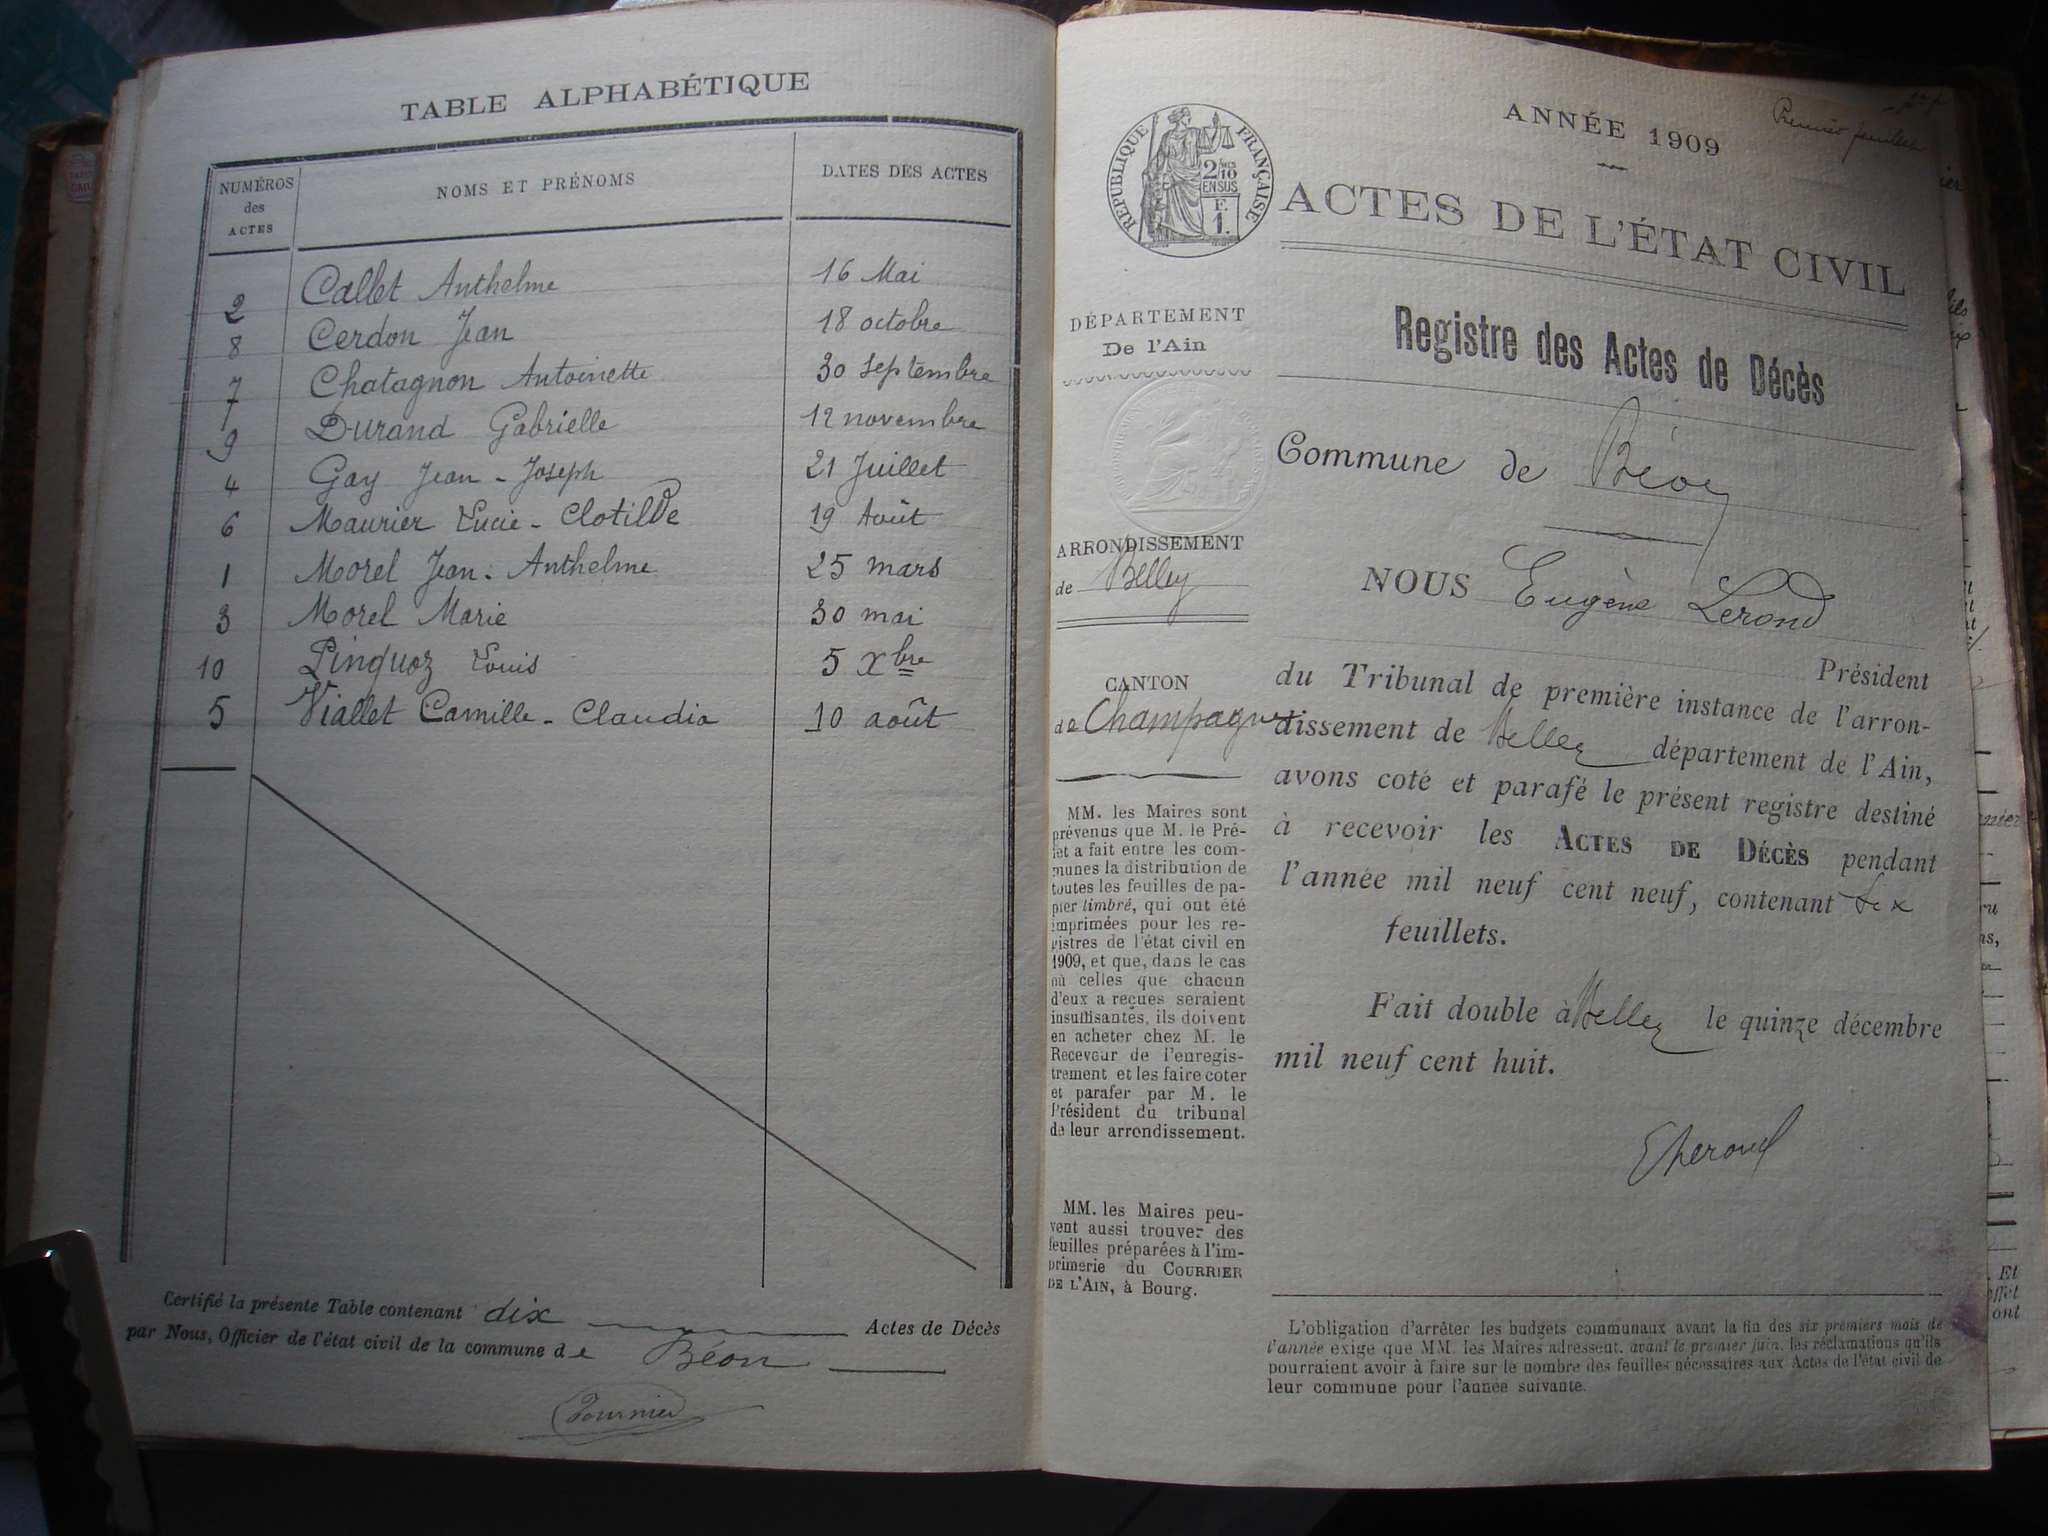 TABLE ALPHABÉTIQUE
NUMÉROS
des
ACTES
NOMS ET PRÉNOMS
DATES DES ACTES
2 Callet Anthelme 16 Mai
8 Cerdon Jean 18 octobre
7 Chatagnon Antoinette 30 septembre
9 Durand Gabrielle 12 novembre
4 Gay Jean - Joseph 21 Juillet
6 Maurier Lucie - Clotilde 19 Août
1 Morel Jean - Anthelme 25 mars
3 Morel Marie 30 mai
10 Pinquoz Louis 5 Xbre
5 Viallet Camille - Claudia 10 août
Certifié la présente Table contenant dix Actes de Décès
par Nous, Officier de l'état civil de la commune de Béon
Fournier
Premier feuillet
RÉPUBLIQUE FRANÇAISE
2/10
EN SUS
F.
1.
ANNÉE 1909
ACTES DE L'ÉTAT CIVIL
Registre des Actes de Décès
DÉPARTEMENT
De l'Ain
Commune de Béon
ARRONDISSEMENT
de Belley
CANTON
de Champagne
MM. les Maires sont
prévenus que M. le Pré-
fet a fait entre les com-
munes la distribution de
toutes les feuilles de pa-
pier timbré, qui ont été
imprimées pour les re-
gistres de l'état civil en
1909, et que, dans le cas
où celles que chacun
d'eux a reçues seraient
insuffisantes, ils doivent
en acheter chez M. le
Receveur de l'enregis-
trement et les faire coter
et parafer par M. le
Président du tribunal
de leur arrondissement.
MM. les Maires peu-
vent aussi trouver des
feuilles préparées à l'im-
primerie du COURRIER
DE L'AIN, à Bourg.
NOUS Eugène Lerond
Président
du Tribunal de première instance de l'arron-
dissement de Belley département de l'Ain,
avons coté et parafé le présent registre destiné
à recevoir les ACTES DE DÉCÈS pendant
l'année mil neuf cent neuf, contenant six
feuillets.
Fait double à Belley le quinze décembre
mil neuf cent huit.
ELerond
L'obligation d'arrêter les budgets communaux avant la fin des six premiers mois de
l'année exige que MM. les Maires adressent, avant le premier juin, les réclamations qu'ils
pourraient avoir à faire sur le nombre des feuilles nécessaires aux Actes de l'état civil de
leur commune pour l'année suivante.